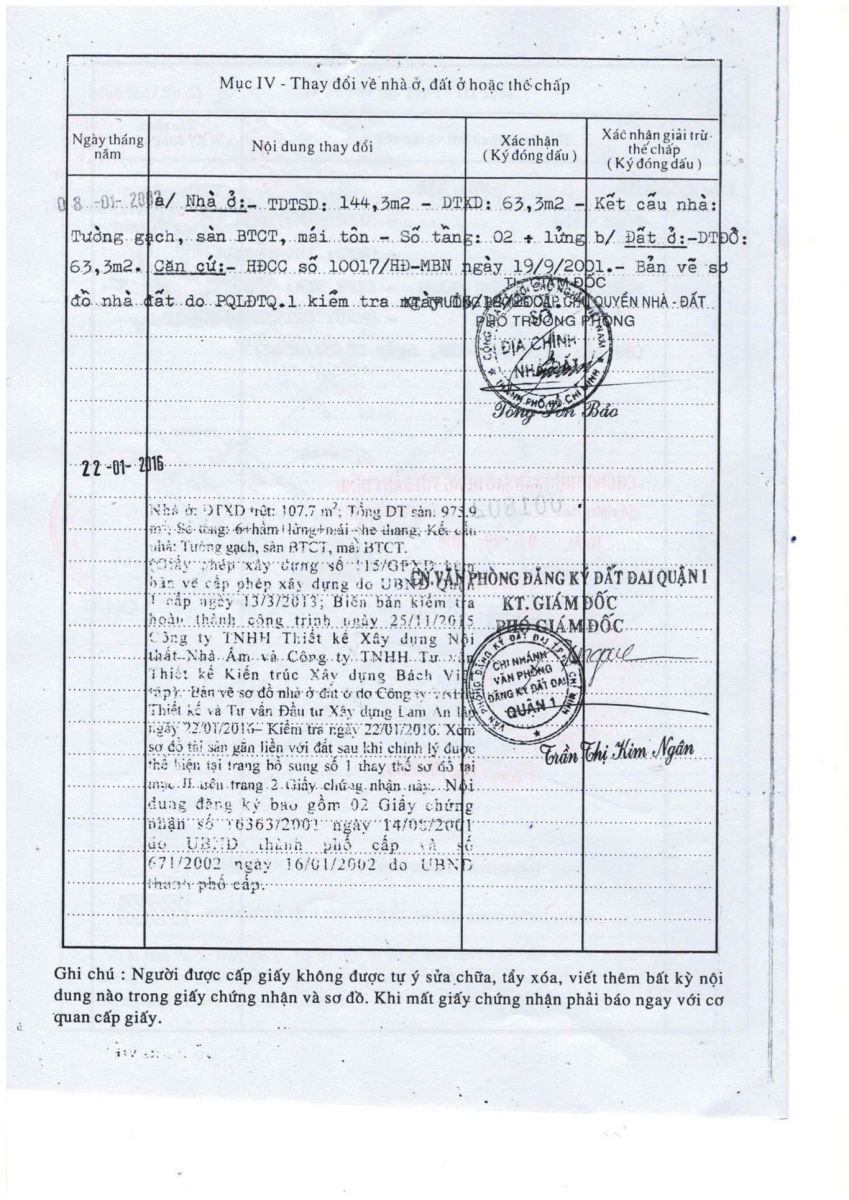 Mục IV - Thay đổi về nhà ở, đất ở hoặc thế chấp
Ngày tháng năm
Nội dung thay đổi
Xác nhận
(Ký đóng dấu)
Xác nhận giải trừ
thế chấp
(Ký đóng dấu)
08 -01- 2002
a/ Nhà ở:- TDTSD: 144,3m2 - DTXD: 63,3m2 - Kết cấu nhà:
Tường gạch, sàn BTCT, mái tôn - Số tầng: 02 + lửng b/ Đất ở:-DTĐỒ:
63,3m2. Căn cứ:- HĐCC số 10017/HĐ-MBN ngày 19/9/2001.- Bản vẽ sơ
TL. GIÁM ĐỐC
đồ nhà đất do PQLĐTQ.1 kiểm tra ngày
KT. TRƯỞNG PHÒNG CẤP CHỦ QUYỀN NHÀ - ĐẤT
PHÓ TRƯỞNG PHÒNG
SỞ
ĐỊA CHÍNH
NHÀ ĐẤT
THÀNH PHỐ HỒ CHÍ MINH
Tống Bảo
22 -01- 2016
Nhà ở: DTXD trệt: 107.7 m², Tổng DT sàn: 975.9
m², Số tầng: 6+hầm+lửng+mái che thang; Kết cấu
nhà: Tường gạch, sàn BTCT, mái BTCT.
(Giấy phép xây dựng số 115/GPXD kèm
bản vẽ cấp phép xây dựng do UBND Quận
1 cấp ngày 13/3/2013; Biên bản kiểm tra
hoàn thành công trình ngày 25/11/2015
Công ty TNHH Thiết kế Xây dựng Nội
thất Nhà Ấm và Công ty TNHH Tư vấn
Thiết kế Kiến trúc Xây dựng Bách Việt
lập). Bản vẽ sơ đồ nhà ở đất ở do Công ty TNHH
Thiết kế và Tư vấn Đầu tư Xây dựng Lam An lập
ngày 22/01/2016- Kiểm tra ngày 22/01/2016. Xem
sơ đồ tài sản gắn liền với đất sau khi chỉnh lý được
thể hiện tại trang bổ sung số 1 thay thế sơ đồ tại
mục II trên trang 2 Giấy chứng nhận này. Nội
dung đăng ký bao gồm 02 Giấy chứng
nhận số 16363/2001 ngày
do UBND thành phố cấp và số
671/2002 ngày 16/01/2002 do UBND
thành phố cấp.
CN VĂN PHÒNG ĐĂNG KÝ ĐẤT ĐAI QUẬN 1
KT. GIÁM ĐỐC
PHÓ GIÁM ĐỐC
VĂN PHÒNG ĐĂNG KÝ ĐẤT ĐAI T.P HỒ CHÍ MINH
CHI NHÁNH
VĂN PHÒNG
ĐĂNG KÝ ĐẤT ĐAI
QUẬN 1
Trần Thị Kim Ngân
Ghi chú : Người được cấp giấy không được tự ý sửa chữa, tẩy xóa, viết thêm bất kỳ nội
dung nào trong giấy chứng nhận và sơ đồ. Khi mất giấy chứng nhận phải báo ngay với cơ
quan cấp giấy.